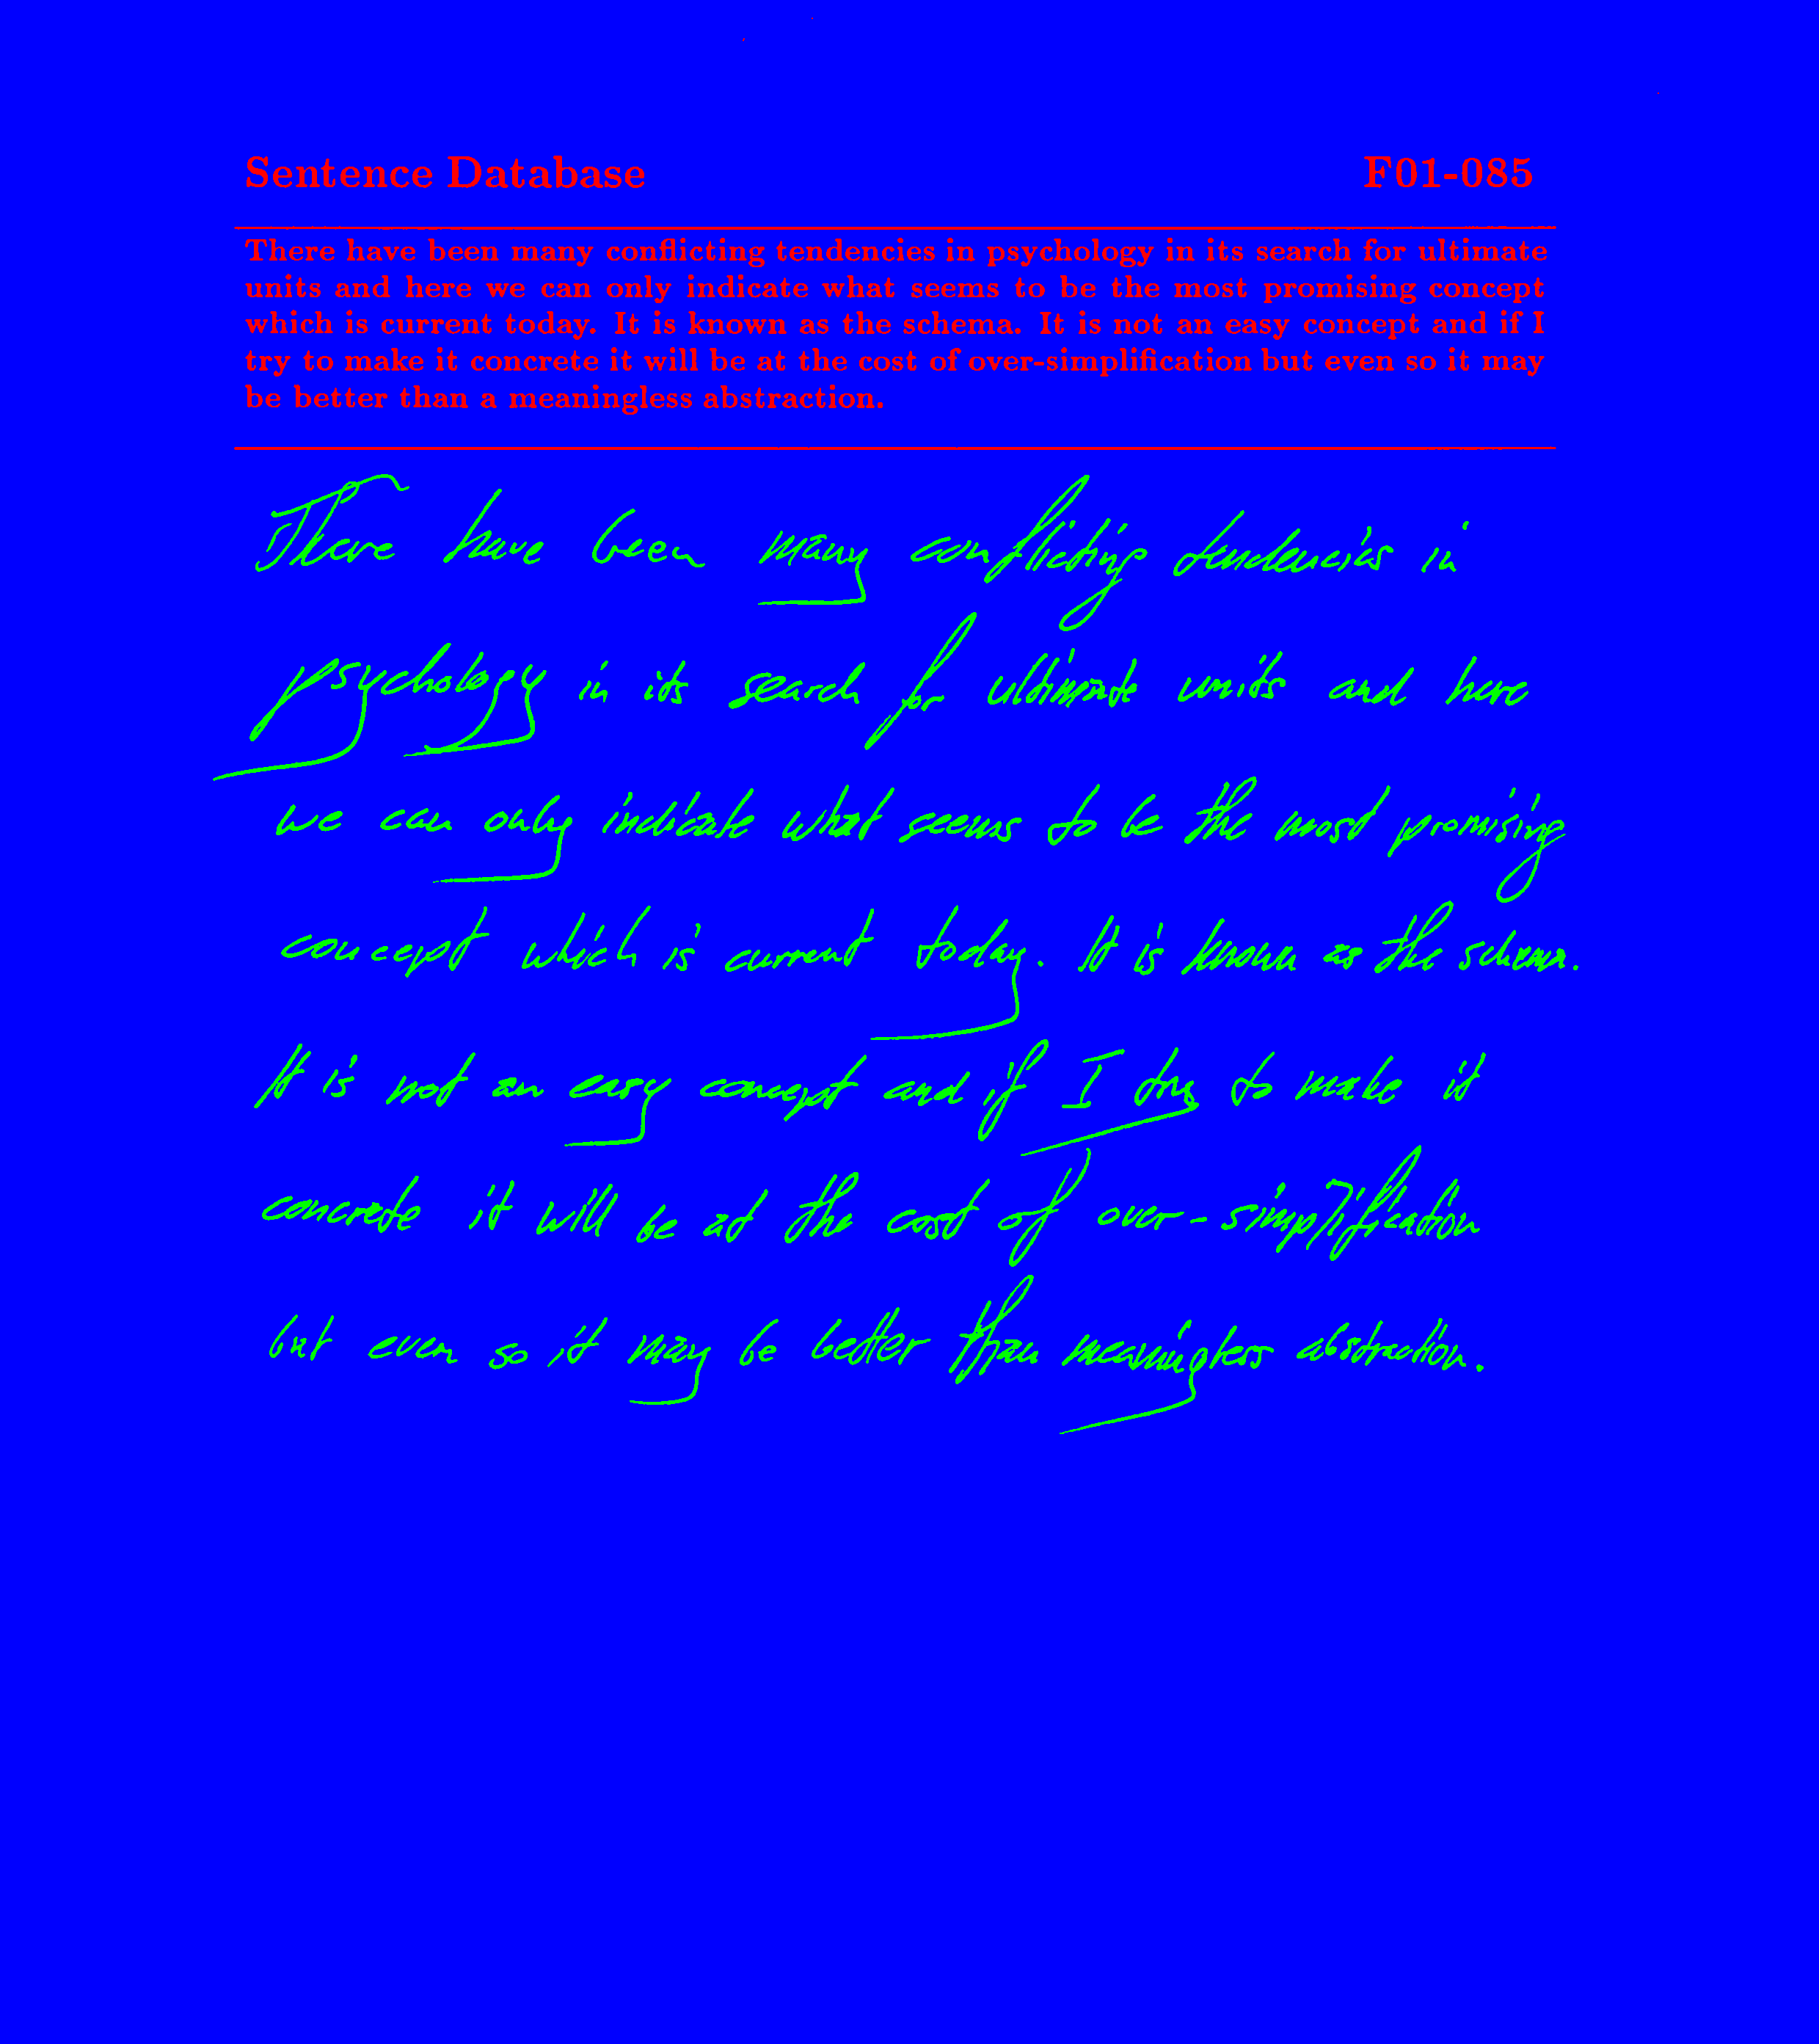 Sentence Database F01-085
There have been many conflicting tendencies in psychology in its search for ultimate
units and here we can only indicate what seems to be the most promising concept
which is current today. It is known as the schema. It is not an easy concept and if I
try to make it concrete it will be at the cost of over-simplification but even so it may
be better than a meaningless abstraction.
There have been many conflicting tendencies in
psychology in its search for ultimate units and here
we can only indicate what seems to be the most promising
concept which is current today. It is known as the schema.
It is not an easy concept and if I try to make it
concrete it will be at the cost of over-simplification
but even so it may be better than meaningless abstraction.